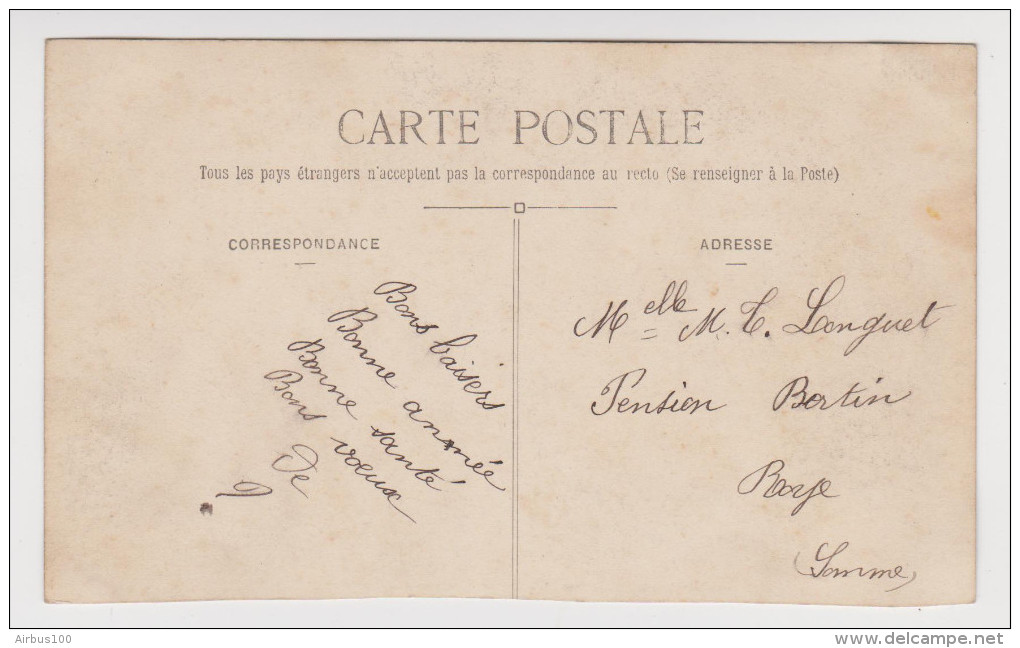 CARTE POSTALE
Tous les pays étrangers n'acceptent pas la correspondance au recto (Se renseigner à la Poste)
CORRESPONDANCE
Bons baisers
Bonne année
Bonne santé
Bons voeux
De
?
ADRESSE
Melle M. T. Longuet
Pension Bertin
Roye
(Somme)
Airbus100
delcampe.net